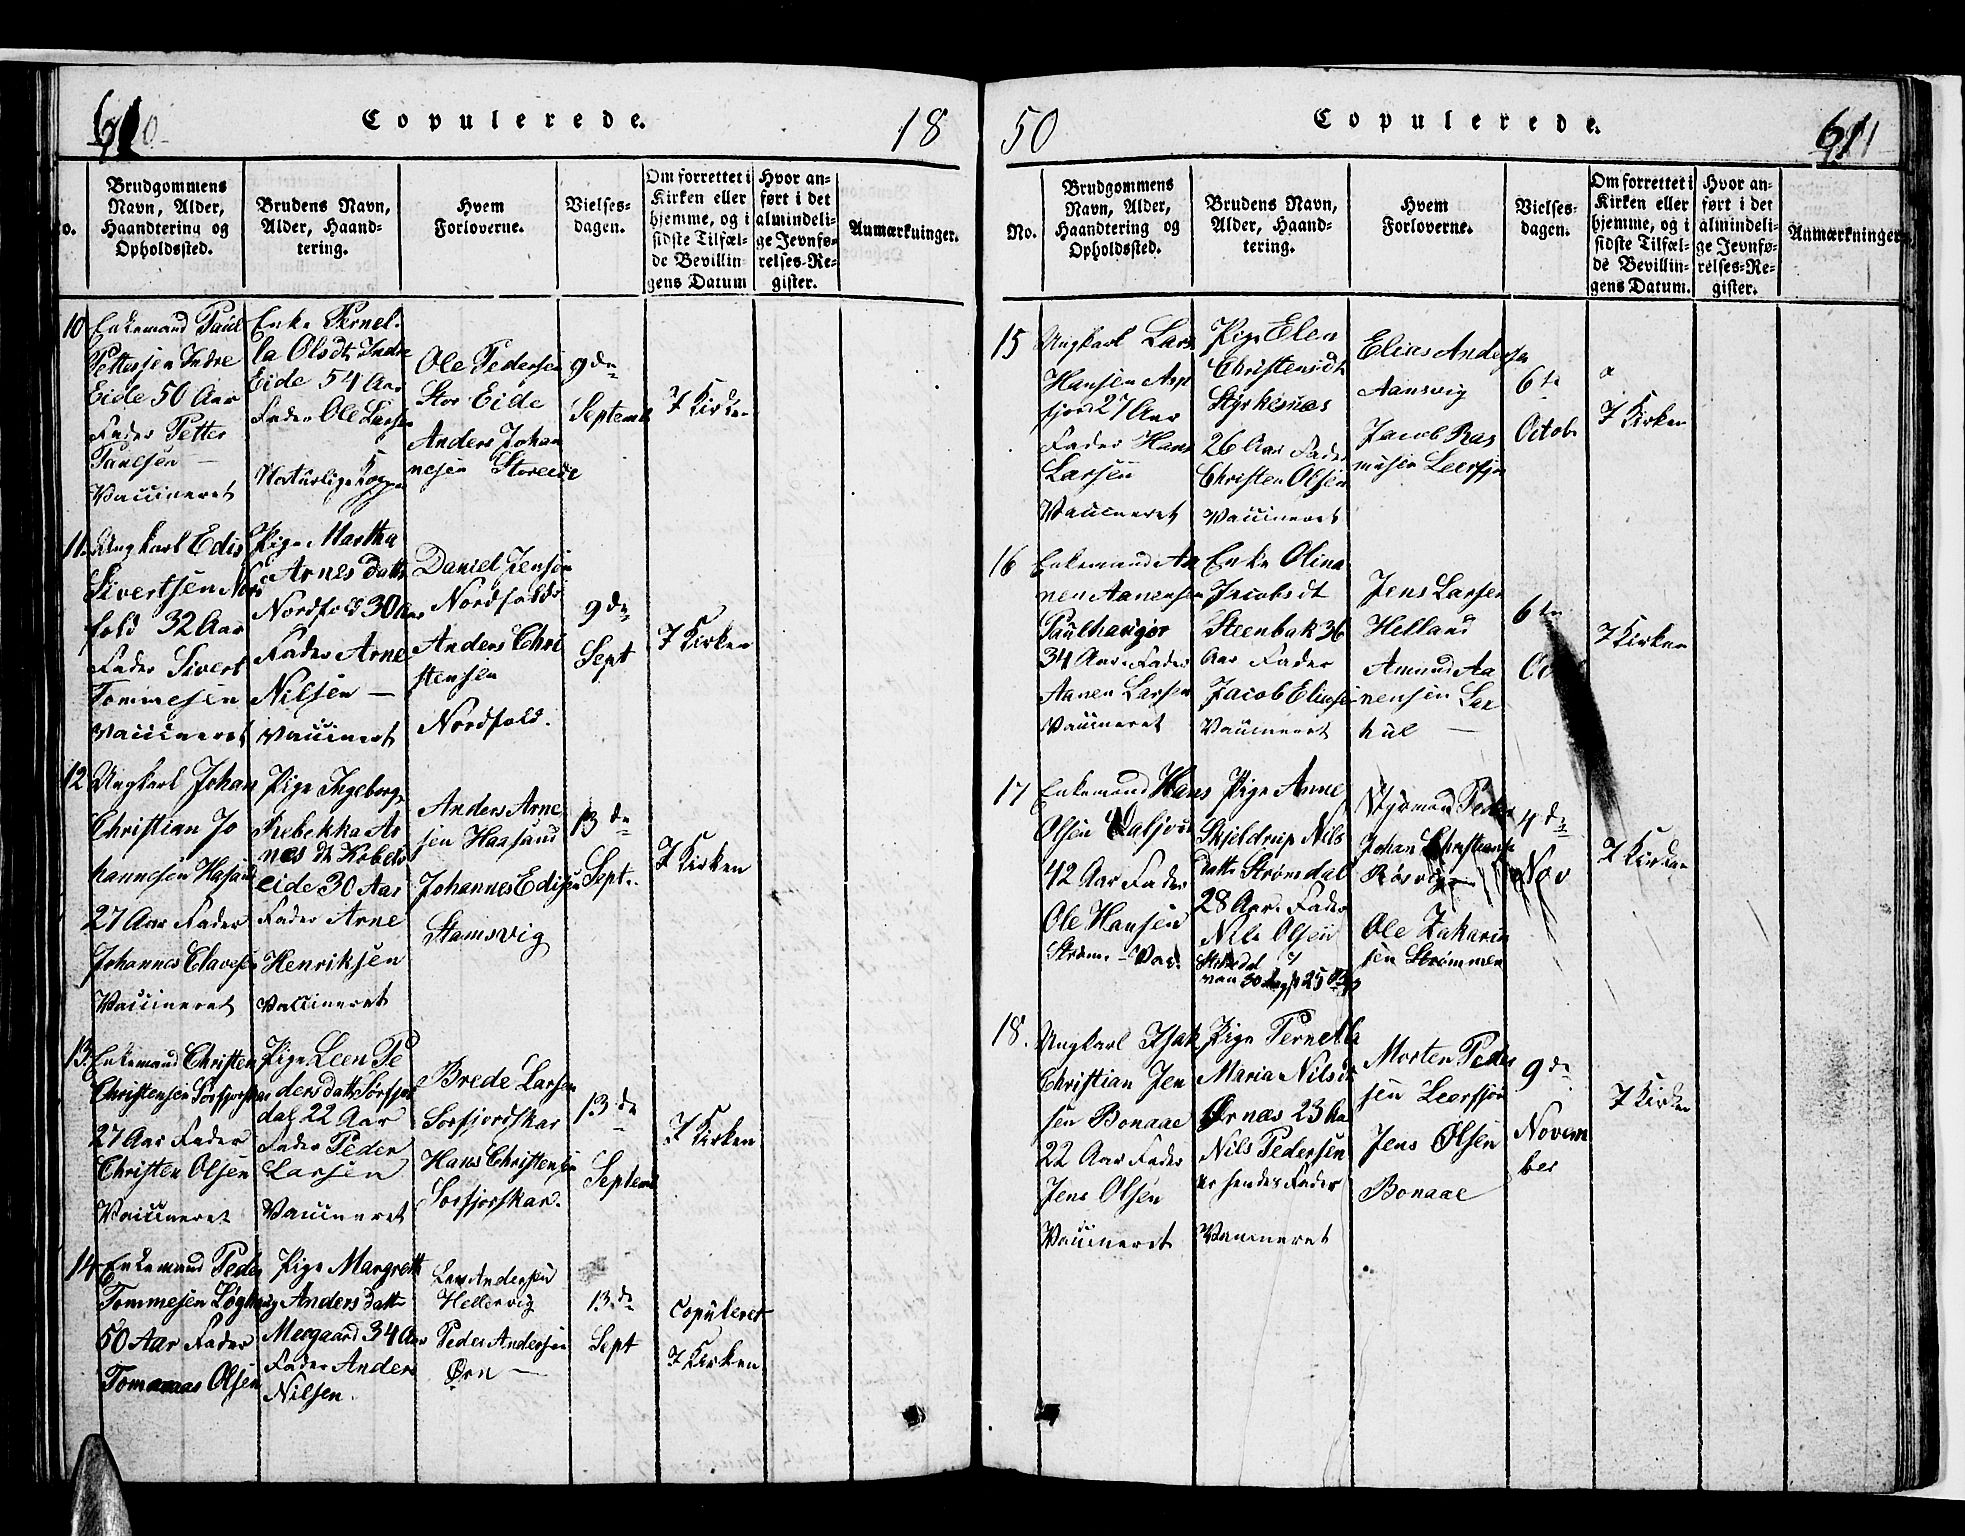 Copulerede.
18
No.
Brudgommens
Navn, Alder,
Haandtering og
Opholdssted.
Brudens Navn,
Alder, Haand-
tering.
Hvem
Forloverne.
Vielses-
dagen.
Om forrettet i
Kirken eller
hjemme, og i
sidste Tilfæl-
de Bevillin-
gens Datum
Hvor an-
ført i det
almindeli-
ge Jevnfø-
relses-Re-
gister.
Anmærkninger.
10
Enkemand Paul
Pettersen Indre
Eide 50 Aar
Fader Petter
Paulsen —
Vaccineret
Enke Pernel-
la Olsdt Indre
Eide 54 Aar
Fader Ole Larsen
Naturlige Kopper
Ole Pedersen
Stor Eide
Anders Johan
nesen Storeide
9de
Septemb
I Kirken
11.
Ungkarl Edis
Sivertsen Nord
fold 32 Aar
Fader Sivert
Tommesen
Vaccineret
Pige Martha
Arnes datt
Nordfold 30 Aar
Fader Arne
Nilsen —
Vaccineret
Daniel Jensen
Nordfold
Anders Chri
stensen
Nordfold.
9de
Sept
I Kirken
12
Ungkarl Johan
Christian Jo
hannesen Hasand
27 Aar Fader
Johannes Clavesen
Vaccineret
Pige Ingeborg
Rebekka Ar
nes dt Kobels
eide 30 Aar
Fader Arne
Henriksen
Vaccineret
Anders Arne
sen Haasand
Johannes Edisen
Stamsvig
13de
Sept.
I Kirken
13.
Enkemand Christen
Christensen Sørfjorskar
27 Aar Fader
Christen Olsen
Vaccineret
Pige Leen Pe
dersdatt Sørfjor
dal 22 Aar
Fader Peder
Larsen
Vaccineret
Brede Larsen
Sorfjordskar
Hans Christensen
Sorfjorskar.
13de
Septemb
I Kirken
14
Enkemand Peder
Tommesen Løghaug
50 Aar Fader
Tommas Olsen
Pige Margreth
Anders datt
Mesgaard 34 Aar
Fader Anders
Nilsen.
Lars Andersen
Hellervig
Peder Andersen
Ørn —
13.de
Sept
Copuleret
I Kirken
50
Copulerede.
No.
Brudgommens
Navn, Alder,
Haandtering og
Opholdssted.
Brudens Navn,
Alder, Haand-
tering.
Hvem
Forloverne.
Vielses-
dagen.
Om forrettet i
Kirken eller
hjemme, og i
sidste Tilfæl-
de Bevillin-
gens Datum.
Hvor an-
ført i det
almindeli-
ge Jevnfø-
relses-Re-
gister.
Anmærkninger.
15
Ungkarl Lars
Hansen Asp
fjord 27 Aar
Fader Hans
Larsen
Vaccineret
Pige Elen
Christensdt
Styrkesnæs
26 Aar Fader
Christen Olsen
Vaccineret
Elias Andersen
Aansvig
Jacob Ras
musen Leersjon
6te
Octob
I Kirken
16
Enkemand Aa
nen Aanensen
Paulhaugor
34 Aar Fader
Aanen Larsen
Vaccineret
Enke Olina
Jacobsdt
Steenbak 36
Aar Fader
Jacob Eliasen
Vaccineret
Jens Larsen
Helland
Amund Aa
nensen Lax
hul —
6te
I Kirken
17
Enkemand Hans
Olsen
42 Aar Fader
Ole Hansen
Strøm. — Vac.
Pige Anne
Skjeldrup Nils
datt Strømdal
28 Aar. Fader
Nils Olsen
Johan Christiansen
Røsvig —
Ole Zakaria
sen Strømmen
4de
Nov
I Kirken
18.
Ungkarl Isak
Christian Jen
sen Bonaae
22 Aar Fader
Jens Olsen
Vaccineret
Pige Pernella
Maria Nilsdt
Ørnæs 23 Aar
Nils Pedersen
er hendes Fader
Vaccineret
Morten Peder
sen Leersjon
Jens Olsen
Bonaae
9de
Novem
ber
I Kirken